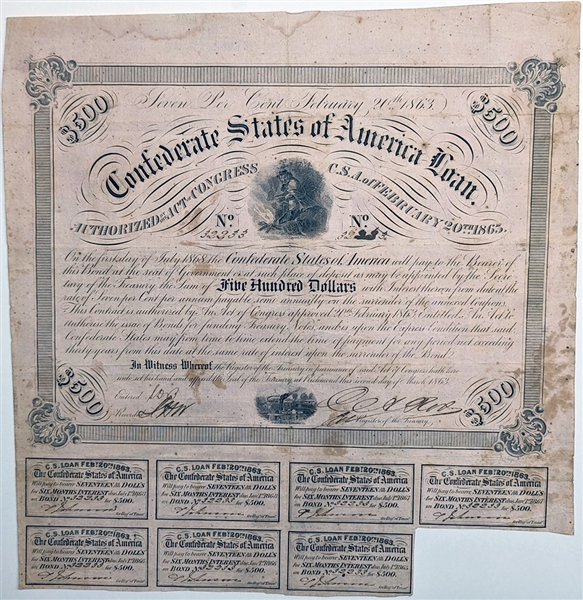 $500
$500
Seven Per Cent February 20th 1863
Confederate States of America Loan.
AUTHORIZED BY ACT OF CONGRESS
C.S.A. of FEBRUARY 20TH 1863.
No
No
On the first day of July 1868 the Confederate States of America will pay to the Bearer of
this Bond at the seat of Government or at such place of deposit as may be appointed by the Secre-
tary of the Treasury the Sum of Five Hundred Dollars with Interest thereon from date at the
rate of Seven per Cent per annum payable semi-annually on the surrender of the annexed Coupons.
This Contract is authorized by An Act of Congress approved 20th February 1863 Entitled "An Act to
authorize the issue of Bonds for funding Treasury Notes, and is upon the Express Condition that said
Confederate States may from time to time extend the time of payment for any period not exceeding
thirty years from this date at the same rate of interest upon the surrender of the Bond.
In Witness Whereof the Register of the Treasury in pursuance of said Act of Congress hath here
unto set his hand and affixed the Seal of the Treasury at Richmond this second day of March 1863
Entered
Recorded
Register of the Treasury.
$500
$500
C.S. LOAN FEB. 20TH 1863.
The Confederate States of America
Will pay to bearer SEVENTEEN 50 DOLLS
for SIX MONTHS INTEREST due
on BOND No 52233 for $500.
for Reg of Treas.
C.S. LOAN FEB. 20TH 1863.
The Confederate States of America
Will pay to bearer SEVENTEEN 50 DOLLS
for SIX MONTHS INTEREST due
on BOND No 52233 for $500.
C.S. LOAN FEB. 20TH 1863.
The Confederate States of America
Will pay to bearer SEVENTEEN 50 DOLLS
for SIX MONTHS INTEREST due
on BOND No 52233 for $500.
C.S. LOAN FEB. 20TH 1863.
The Confederate States of America
Will pay to bearer SEVENTEEN 50 DOLLS
for SIX MONTHS INTEREST due
on BOND No 52233 for $500.
C.S. LOAN FEB. 20TH 1863.
The Confederate States of America
Will pay to bearer SEVENTEEN 50 DOLLS
for SIX MONTHS INTEREST due
on BOND No 52233 for $500.
C.S. LOAN FEB. 20TH 1863.
The Confederate States of America
Will pay to bearer SEVENTEEN 50 DOLLS
for SIX MONTHS INTEREST due
on BOND No 52233 for $500.
C.S. LOAN FEB. 20TH 1863.
The Confederate States of America
Will pay to bearer SEVENTEEN 50 DOLLS
for SIX MONTHS INTEREST due
on BOND No 52233 for $500.